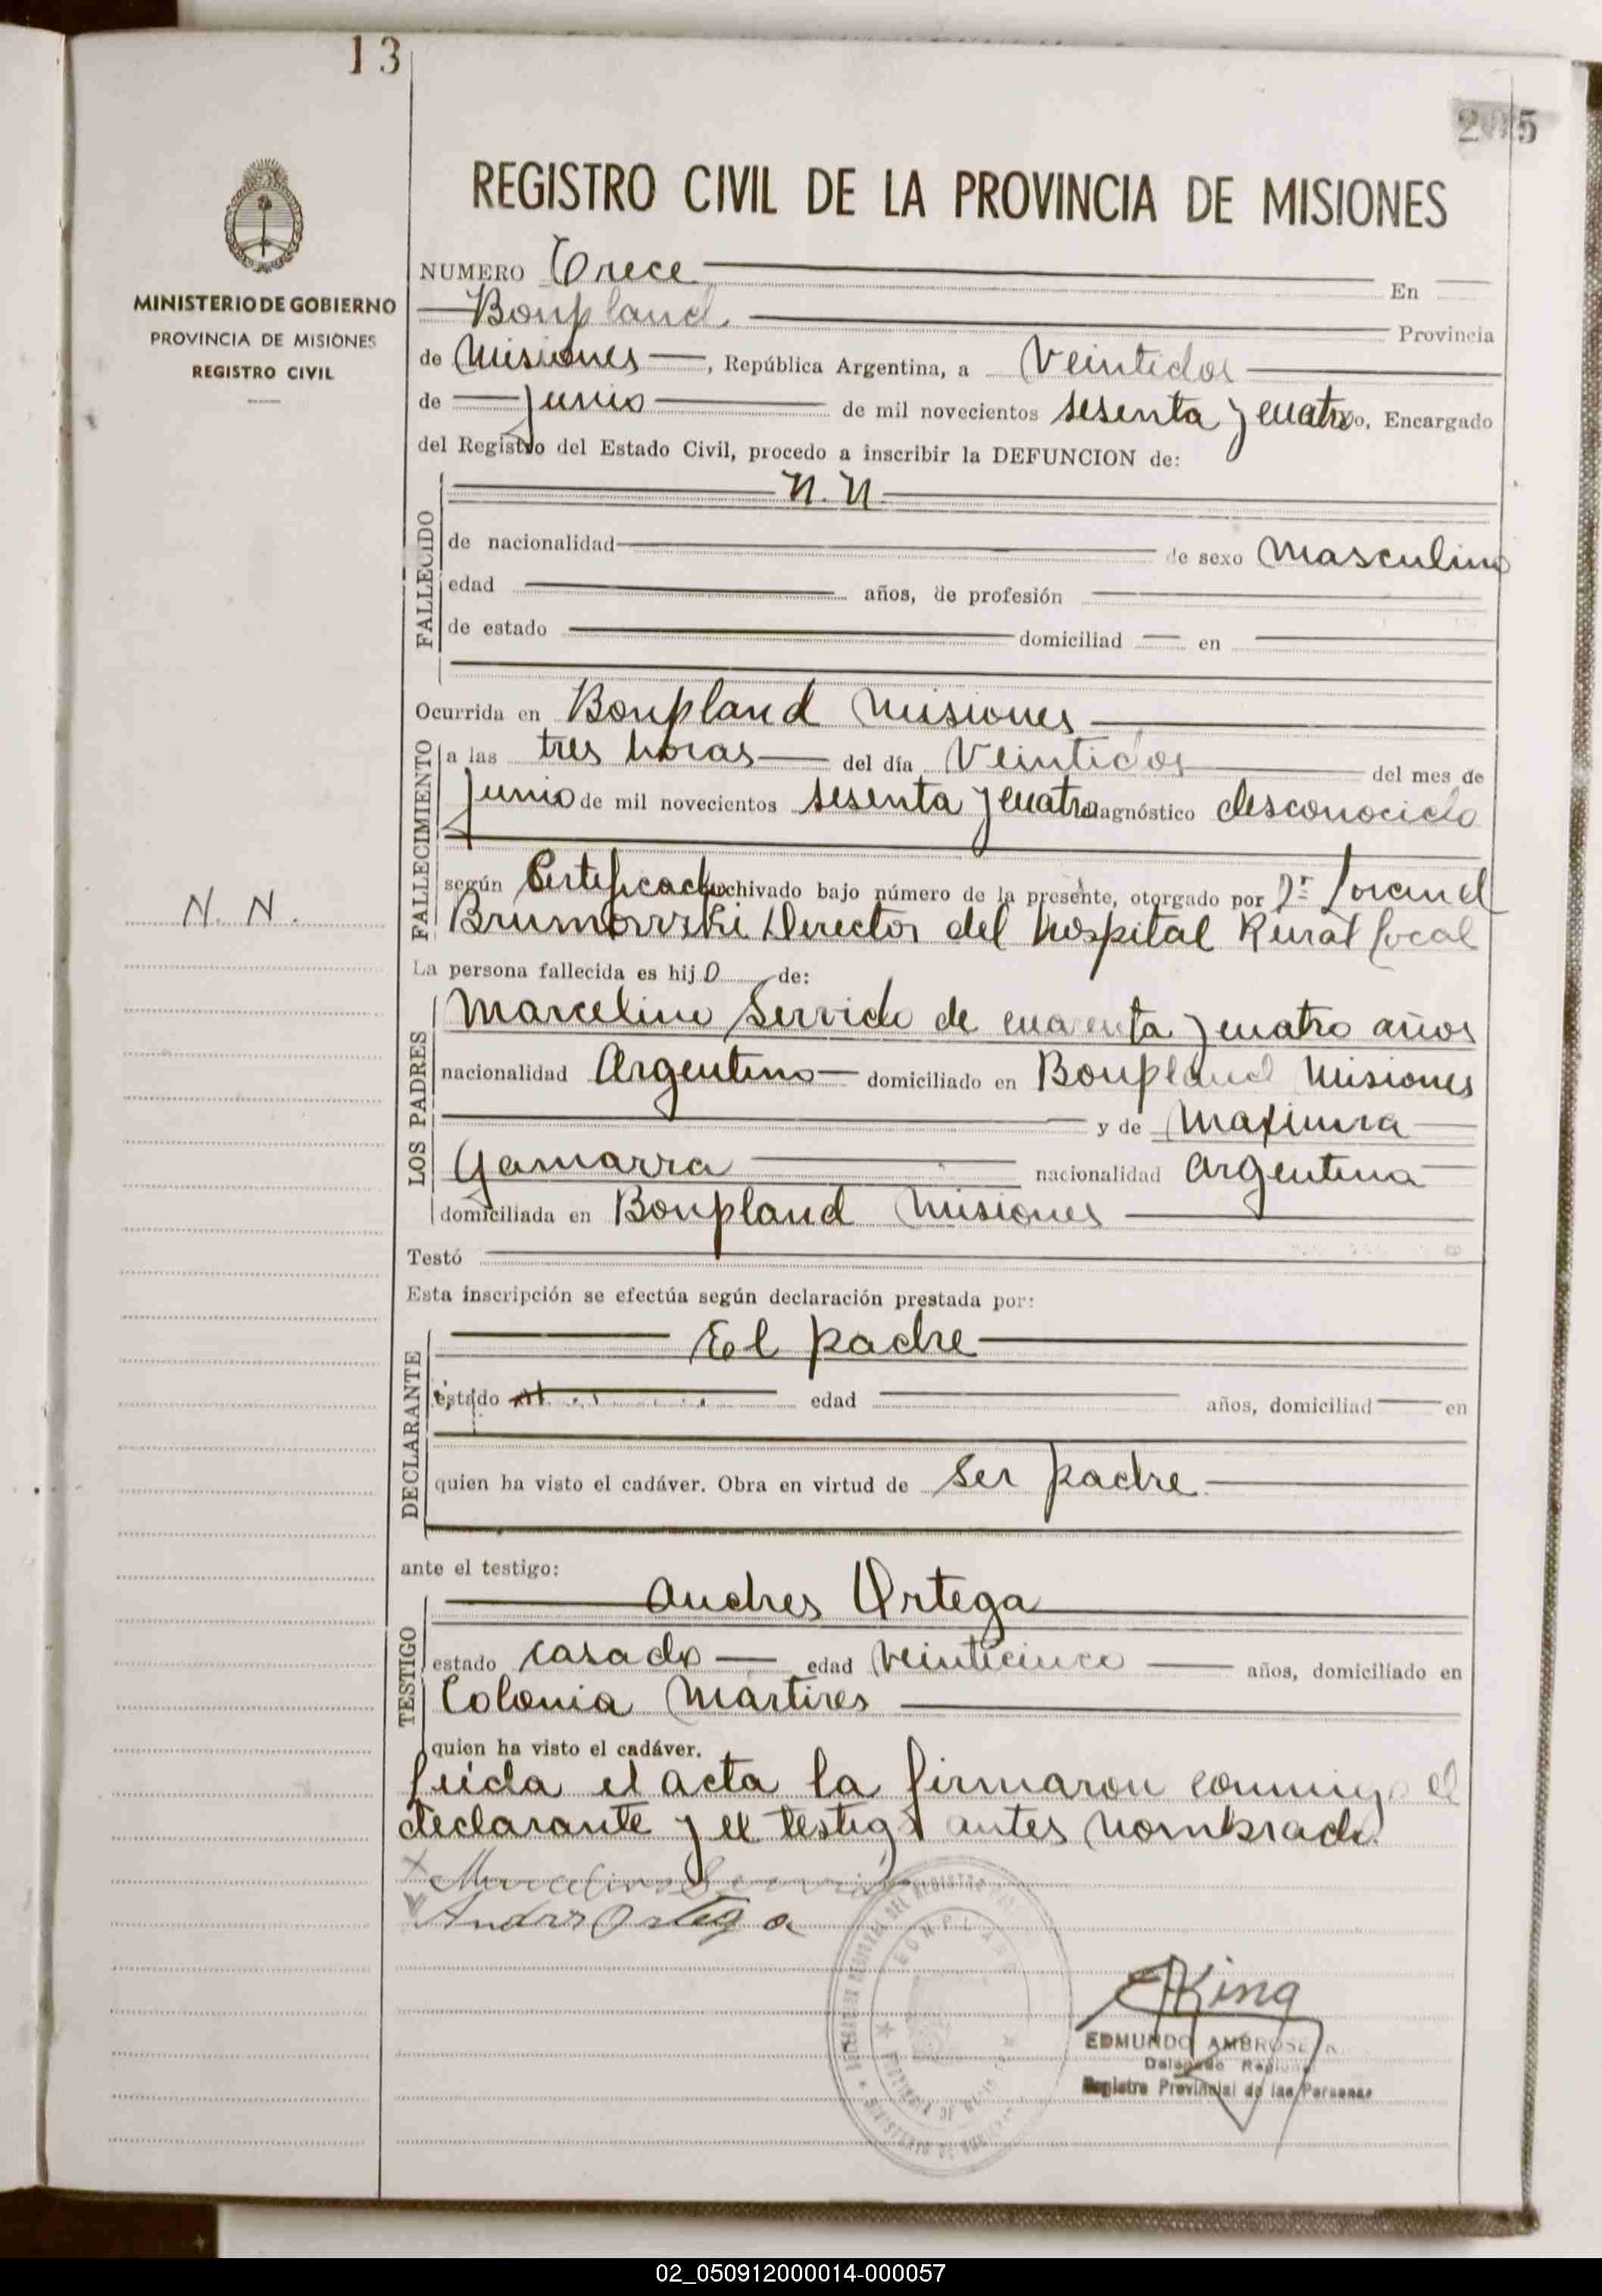 13
205
REGISTRO CIVIL DE LA PROVINCIA DE MISIONES
MINISTERIO DE GOBIERNO
PROVINCIA DE MISIONES
REGISTRO CIVIL
NUMERO Trece En
Bonpland. Provincia
de Misiones, República Argentina, a Veintidos
de Junio de mil novecientos sesenta y cuatro, Encargado
del Registro del Estado Civil, procedo a inscribir la DEFUNCION de:
FALLECIDO
N.N
de nacionalidad de sexo Masculino
edad años, de profesión
de estado domiciliad en
Ocurrida en Bonpland Misiones
FALLECIMIENTO
a las tres horas del día Veintidos del mes de
Junio de mil novecientos sesenta y cuatro diagnóstico desconocido
según Certificado archivado bajo número de la presente, otorgado por Dr
Director del Hospital Rural local
N. N.
La persona fallecida es hijo de:
LOS PADRES
Marcelino Servido de cuarenta y cuatro años
nacionalidad Argentino domiciliado en Bonpland Misiones
y de Maxima
Gamarra nacionalidad Argentina
domiciliada en Bonpland Misiones
Testó
Esta inscripción se efectúa según declaración prestada por:
DECLARANTE
El padre
estado edad años, domiciliad en
quien ha visto el cadáver. Obra en virtud de ser padre.
ante el testigo:
TESTIGO
Andres Ortega
estado casado edad veinticinco años, domiciliado en
Colonia Martires
quien ha visto el cadáver.
Leida el acta la firmaron conmigo el
declarante y el testigo antes nombrado.
Marcelino Servido
Andres Ortega
BONPLAND
EKing
EDMUNDO AMBROSE
Delegado Regional
Registro Provincial de las Personas
02_050912000014-000057